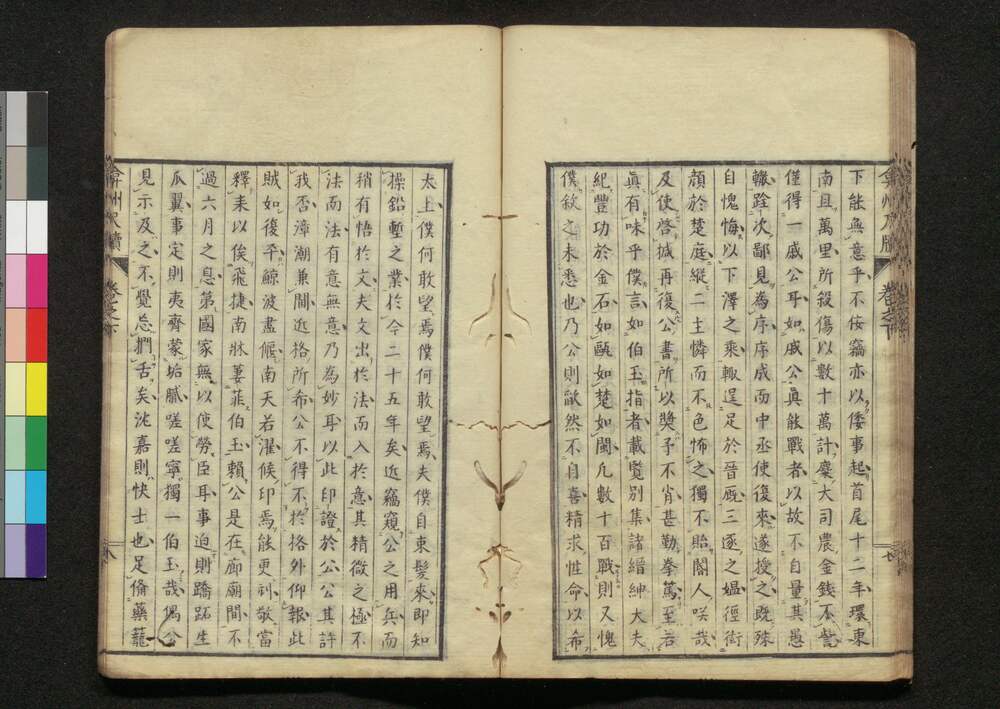 下能無意乎不佞竊亦以倭事起首尾十二年環東
南且萬里所殺傷以數十萬計縻大司農金錢不訾
僅得一戚公耳如戚公眞能戰者以故不自量其愚
轍跧次鄙見為序序成而中丞使復來遂授之既殊
自愧悔以下澤之乘輙逞足於晉厩三逐之媼徑衒
顔於楚庭縱二主憐而不色怖之獨不貽閽人咲哉
及使啓掝再復公書所以奬予不肖甚勤拳篤至若
眞有味乎僕言如伯玉指者載覽別集諸縉紳大夫
紀豐功於金石如甌如楚如閩凢數十百戰則又愧
僕敘之未悉也乃公則歉然不自喜精求性命以希
太上僕何敢望焉僕何敢望焉夫僕自束髮來即知
操鉛塹之業於今二十五年矣近竊窺公之用兵而
稍有悟於文夫文出於法而入於意其精微之極不
法而法有意無意乃為妙耳以此印證於公公其許
我否漳潮兼閫近格所希公不得不於格外仰報此
賊如復平鯨波盡偃南天若濯候印焉能更刓敬當
釋耒以俟飛捷南牀萋菲伯玉賴公是在廊廟間不
過六月之息第國家無以使勞臣耳事迫則蹻跖生
爪翼事定則夷齊蒙垢膩嗟嗟寧獨一伯玉哉偶公
見示及之不覺忘捫舌矣沈嘉則快士也足脩藥籠
弇州尺牘
卷之下
弇州尺牘
卷之下